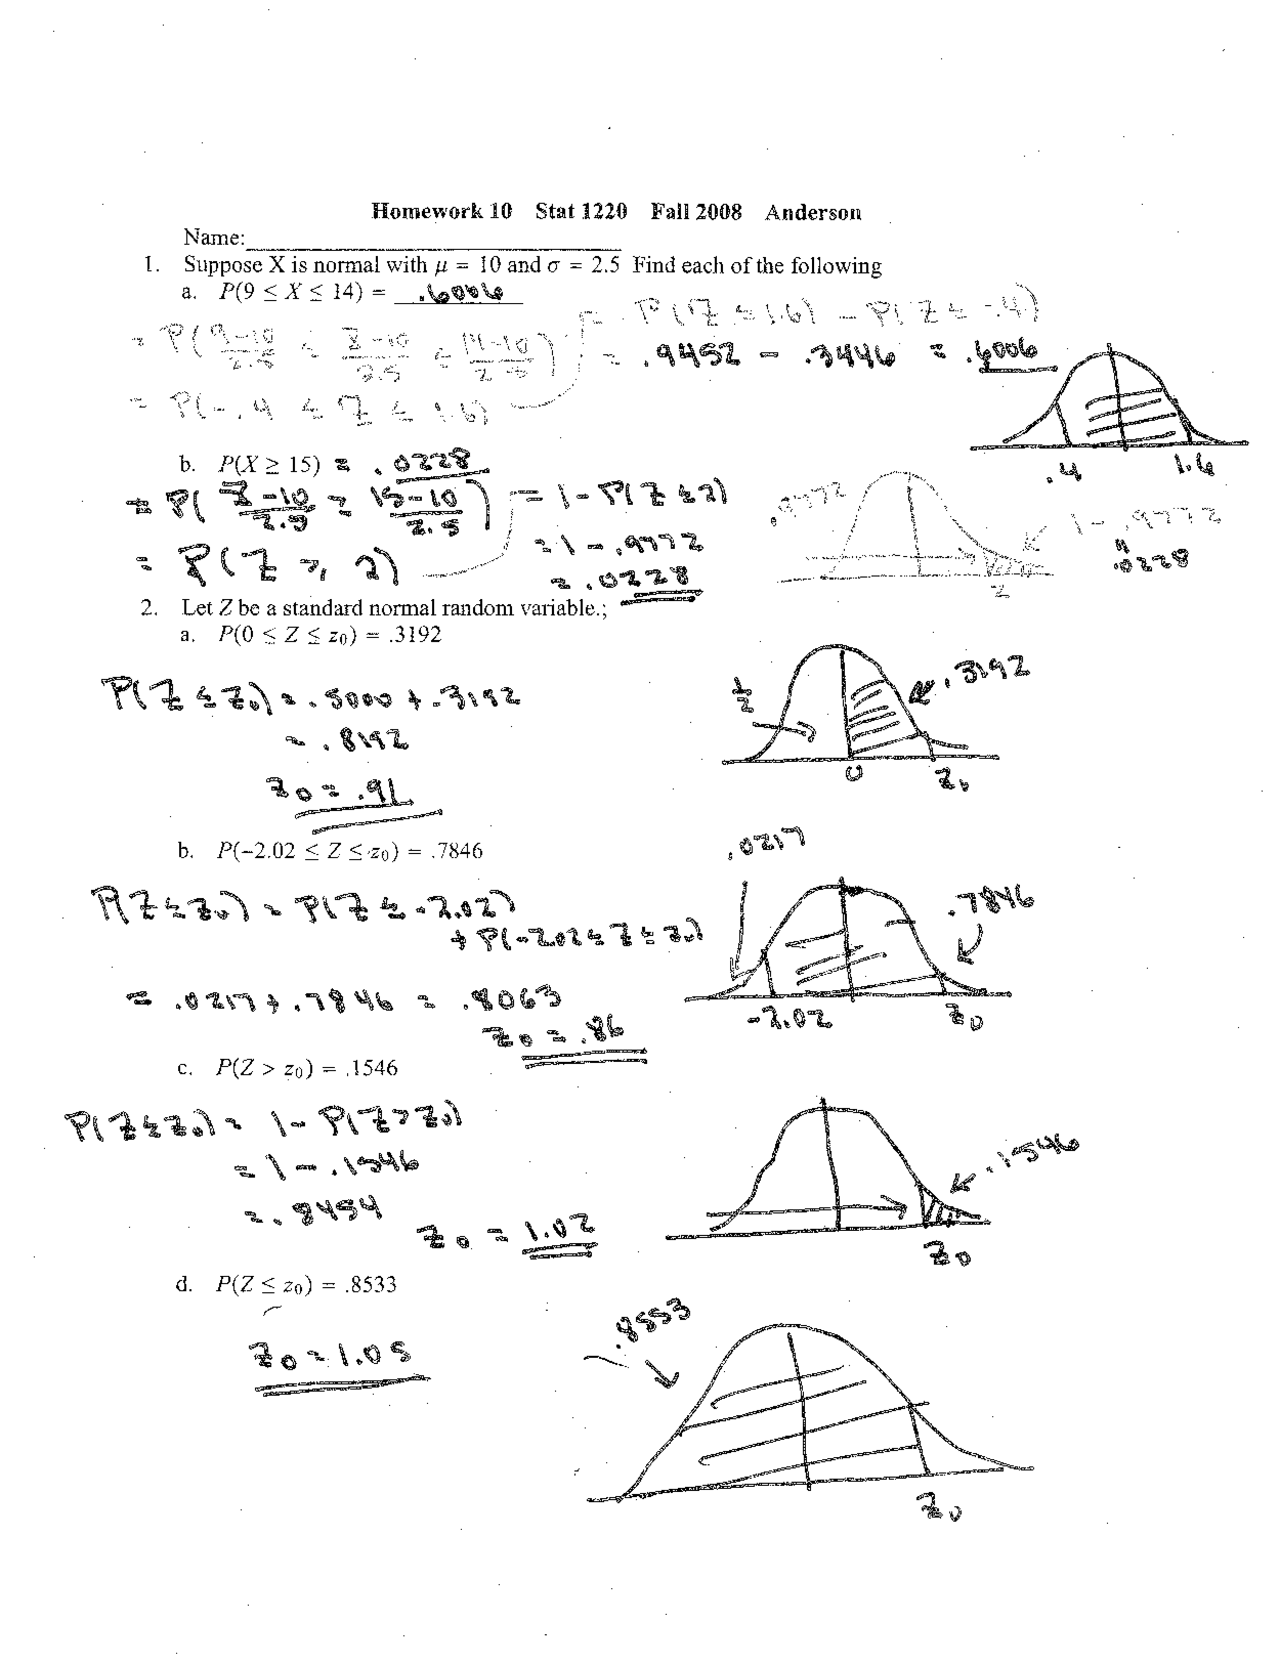 Homework 10 Stat 1220 Fall 2008 Anderson
Name:
1. Suppose X is normal with μ = 10 and σ = 2.5 Find each of the following
a. P(9 ≤ X ≤ 14) = .6006
= P(9-10/2.5 ≤ X-10/2.5 ≤ 14-10/2.5)
= P(-.4 ≤ Z ≤ 1.6)
= P(Z ≤ 1.6) - P(Z ≤ -.4)
= .9452 - .3446 = .6006
.4 1.6
b. P(X ≥ 15) = .0228
= P(X-10/2.5 ≥ 15-10/2.5)
= P(Z ≥ 2)
= 1 - P(Z ≤ 2)
= 1 - .9772
= .0228
.9772
1 - .9772
"
.0228
2
2. Let Z be a standard normal random variable.;
a. P(0 ≤ Z ≤ z₀) = .3192
P(Z ≤ z₀) = .5000 + .3192
= .8192
z₀ = .91
1/2
.3192
0 z₀
b. P(−2.02 ≤ Z ≤ z₀) = .7846
P(Z ≤ z₀) = P(Z ≤ -2.02)
+ P(-2.02 ≤ Z ≤ z₀)
= .0217 + .7846 = .8063
z₀ = .86
.0217
.7846
-2.02 z₀
c. P(Z > z₀) = .1546
P(Z ≤ z₀) = 1 - P(Z > z₀)
= 1 - .1546
= .8454
z₀ = 1.02
.1546
z₀
d. P(Z ≤ z₀) = .8533
z₀ = 1.05
.8553
z₀